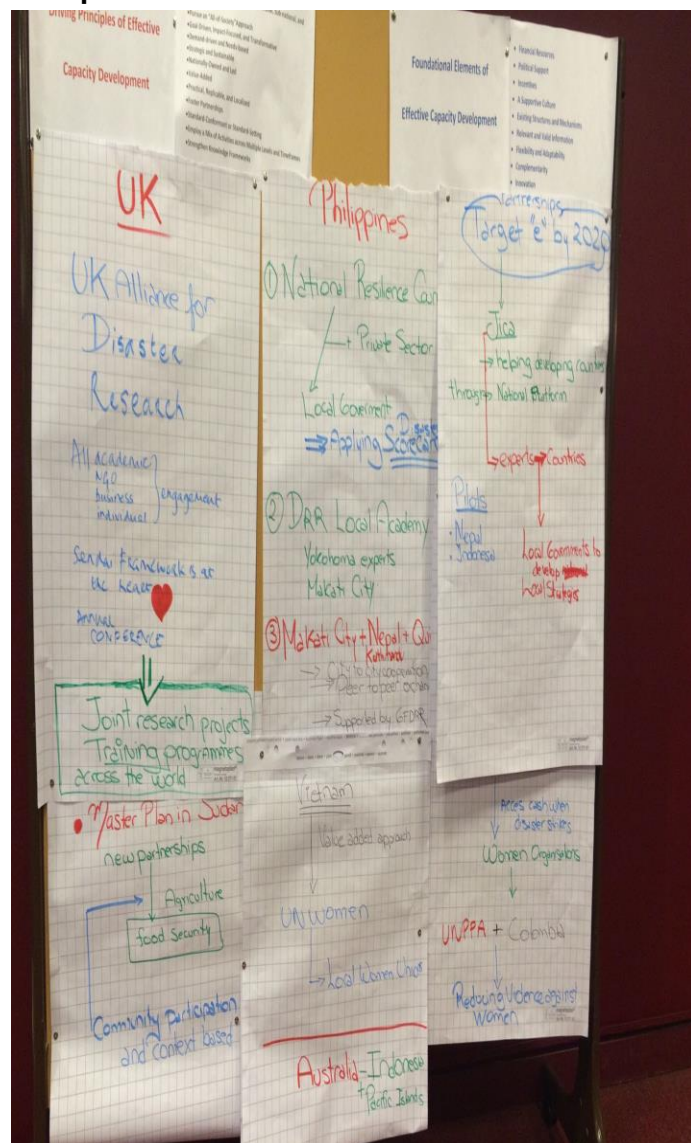 Driving Principles of Effective
Capacity Development
•Focus on "All-of-Society" Approach
•Goal Driven, Impact-Focused, and Transformative
•Demand-driven and Needs-based
•Strategic and Sustainable
•Nationally Owned and Led
•Value Added
•Practical, Replicable, and Localized
•Foster Partnerships
•Standard-Conformant or Standard-Setting
•Employ a Mix of Activities across Multiple Levels and Timeframes
•Strengthen Knowledge Frameworks
Foundational Elements of
Effective Capacity Development
• Financial Resources
• Political Support
• Incentives
• A Supportive Culture
• Existing Structures and Mechanisms
• Relevant and Valid Information
• Flexibility and Adaptability
• Complementarity
• Innovation
UK
UK Alliance for
Disaster
Research
All academic
NGO
business
individual
engagement
Sendai Framework is at
the heart
ANNUAL
CONFERENCE
Joint research projects
Training programmes
across the world
Philippines
① National Resilience Coun
+ Private Sector
Local Government
⇒ Applying Scorecard
② DRR Local Academy
Yokohoma experts
Makati City
③ Makati City + Nepal +
→ City to City cooperation
→ Supported by GFDRR
Partnerships
Target "e" by 2020
Jica
→ helping developing countries
through → National Platform
→ experts → Countries
Pilots
• Nepal
• Indonesia
Local Governments to
develop
Local Strategies
• Master Plan in Sudan
new partnerships
Agriculture
food security
Community participation
and context based
Vietnam
Value added approach
UN Women
→ Local Women Union
Australia - Indonesia
+ Pacific Islands
Access cash when
disaster strikes
Women Organisations
UNPPA + Colombia
Reducing Violence against
Women